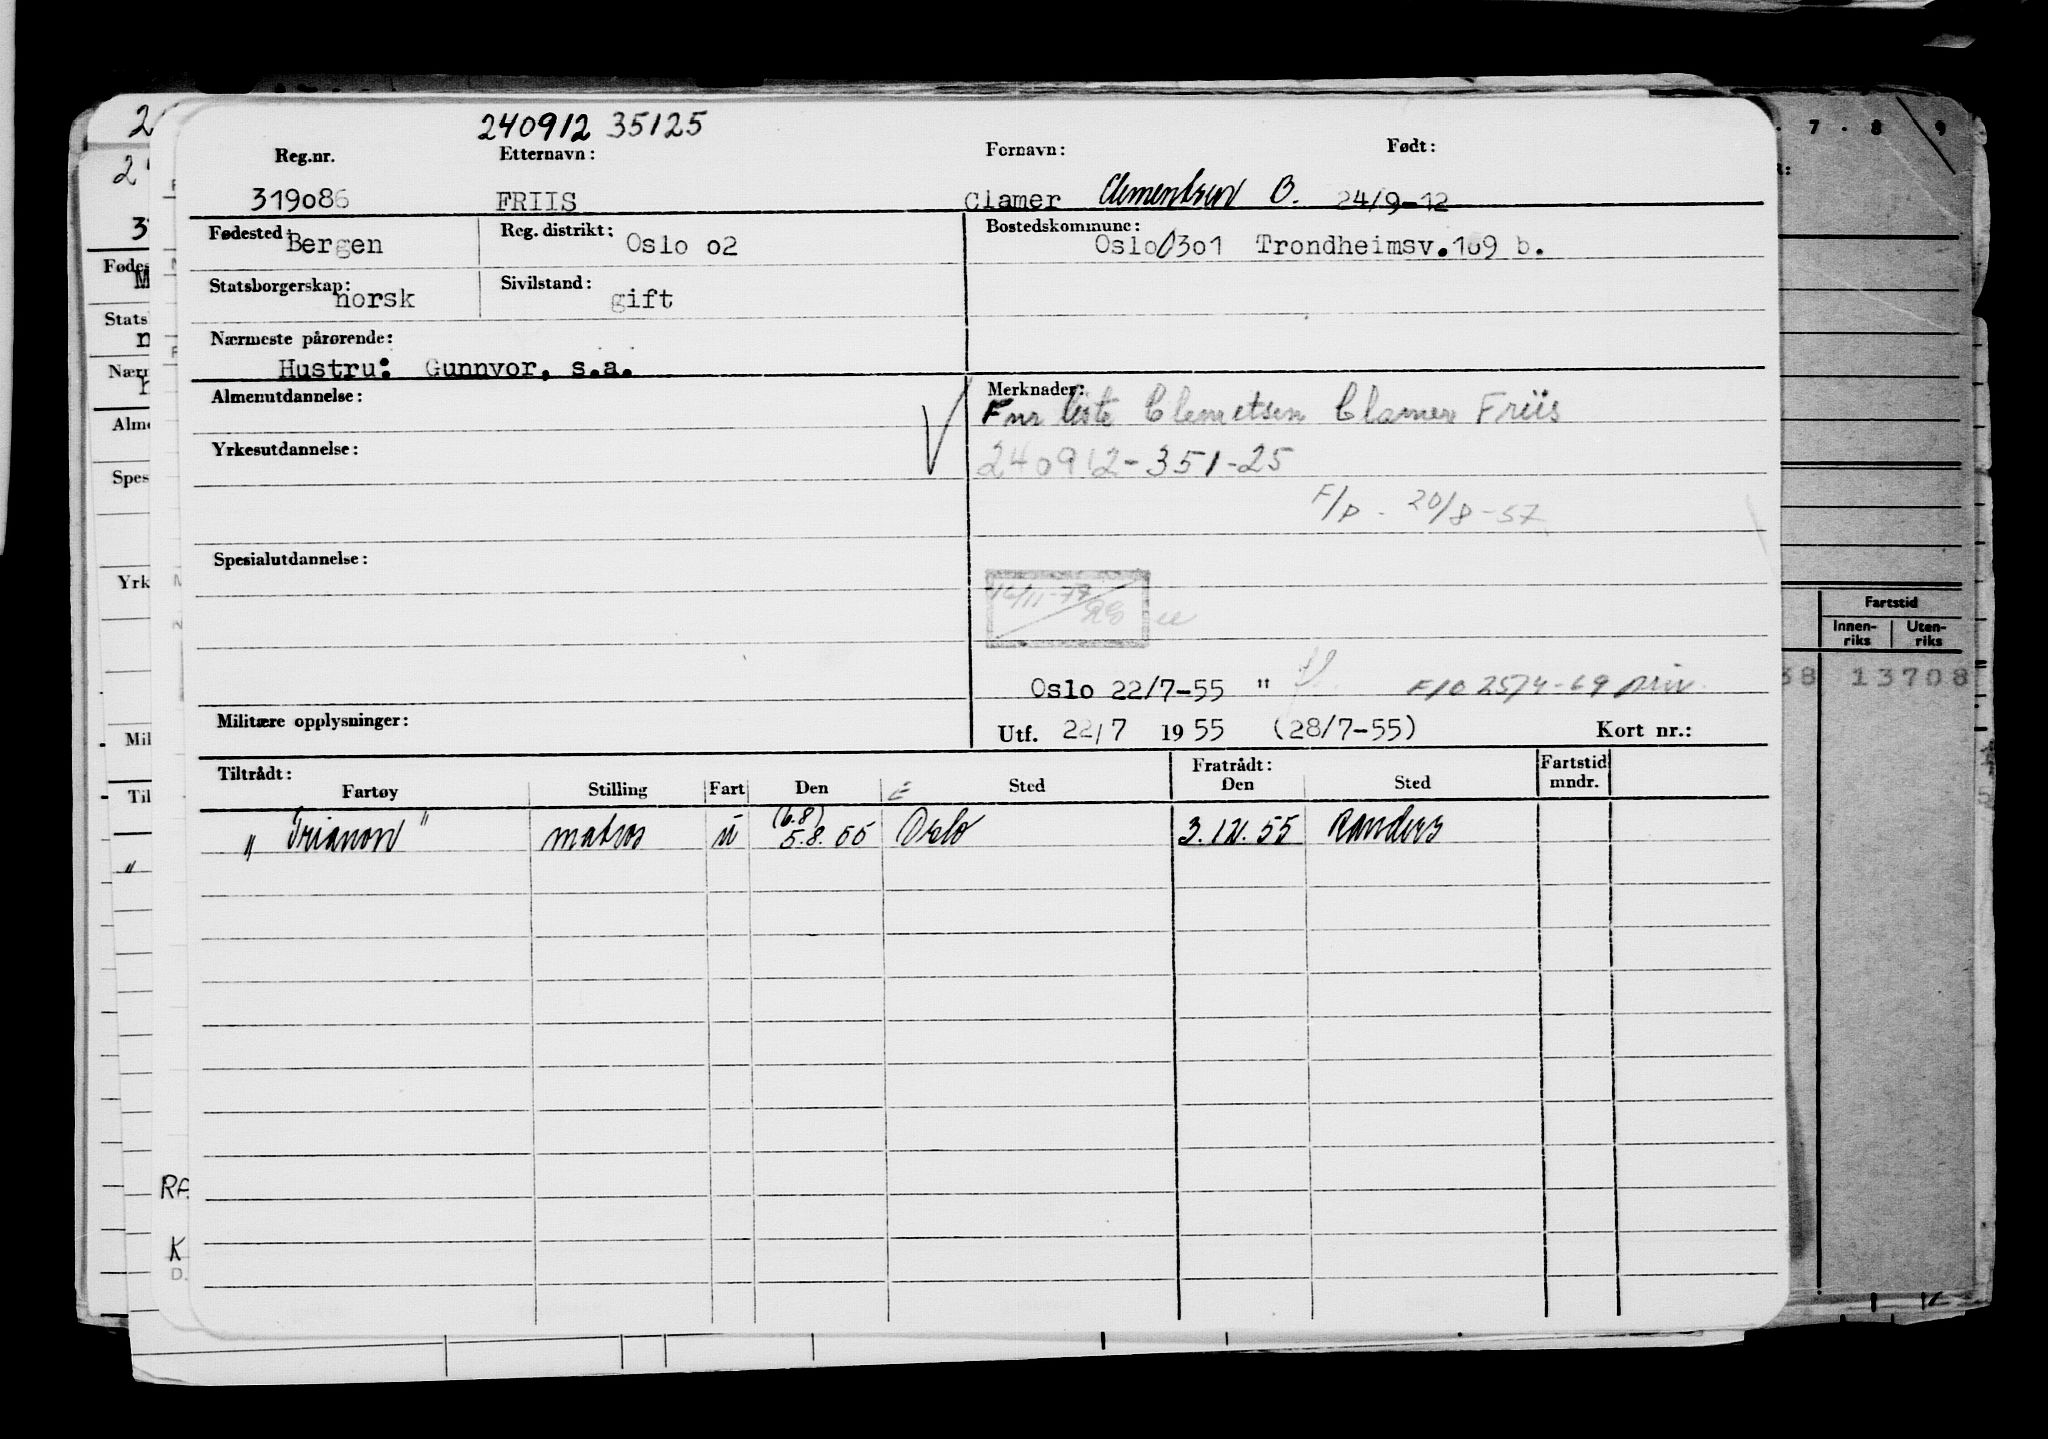 240912 35125
Reg.nr. Etternavn: Fornavn: Født:
319o86 FRIIS Clamer B. 24/9-12
Fødested: Bergen Reg. distrikt: Oslo o2 Bostedskommune: Oslo 0301 Trondheimsv. b.
Statsborgerskap: norsk Sivilstand: gift
Nærmeste pårørende:
Hustru: Gunnvor, s.a.
Almenutdannelse: Merknader:
Fnr liste Clemetsen Clamer Friis
Yrkesutdannelse: 240912-351-25
F/P. 20/8-57
Spesialutdannelse:
16/11-78
Oslo 22/7-55 "
Militære opplysninger: Utf. 22/7 1955 (28/7-55) Kort nr.:
Tiltrådt: Fratrådt: Fartstid
Fartøy Stilling Fart Den Sted Den Sted mndr.
(6.8)
" Trianon " matros u 5.8.55 Oslo 3.12.55 Randers
7 8 9
Fartstid
Innen-riks Uten-riks
38 13708